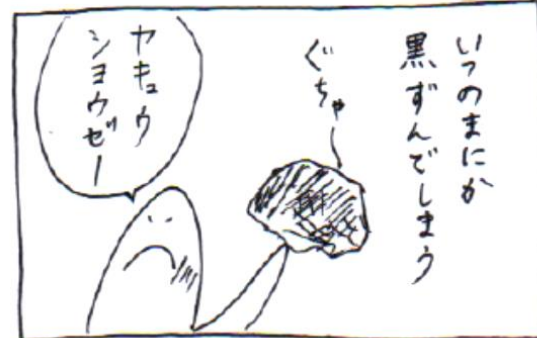 いつのまにか
黒ずんでしまう
ぐちゃ〜
ヤキュウ
ショウゼー